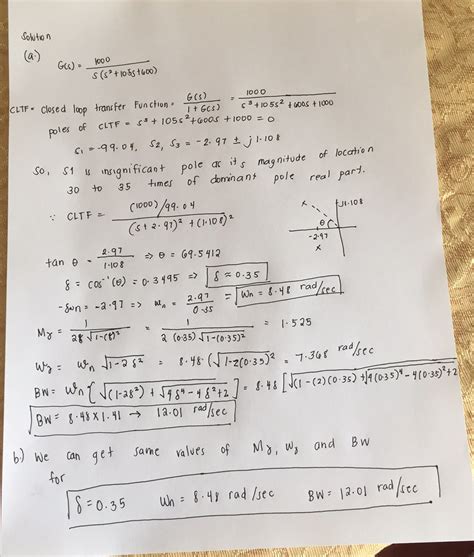 Solution
(a.)
G(s) = 1000 / s(s² + 105s + 600)
CLTF = Closed loop transfer Function = G(s) / 1 + G(s) = 1000 / s³ + 105s² + 600s + 1000
poles of CLTF = s³ + 105s² + 600s + 1000 = 0
s₁ = -99.04, s₂, s₃ = -2.97 ± j1.108
So, S1 is insignificant pole as its magnitude of location
30 to 35 times of dominant pole real part.
∵ CLTF = (1000)/99.04 / (s + 2.97)² + (1.108)²
x
j1.108
θ
-2.97
x
tan θ = 2.97 / 1.108 ⇒ θ = 69.5412
δ = cos⁻¹(θ) = 0.3495 ⇒ δ ≈ 0.35
-δωn = -2.97 ⇒ ωn = 2.97 / 0.35 = Wn = 8.48 rad/sec
Mɣ = 1 / 2δ√1-(δ)² = 1 / 2(0.35)√1-(0.35)² = 1.525
Wɣ = Wn√1-2δ² = 8.48 · (√1-2(0.35)² = 7.368 rad/sec
BW = Wn[√(1-2δ²) + √4δ⁴-4δ²+2] = 8.48[√(1-(2)(0.35) + √4(0.35)⁴ - 4(0.35)² + 2
BW = 8.48 x 1.41 → 12.01 rad/sec
b.) We can get same values of Mɣ, Wɣ and BW
for
δ = 0.35 Wn = 8.48 rad/sec BW = 12.01 rad/sec